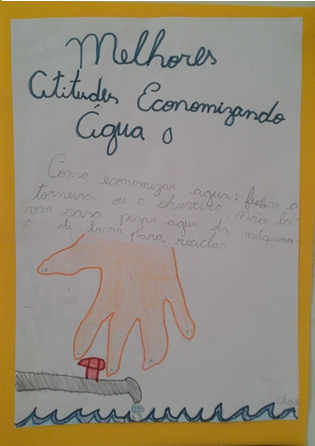 Melhores
Atitudes Economizando
Água
Como economizar água: fechar a
torneira ou o chuveiro, não la-
var casa pegar agua da máquina
de lavar para reciclar